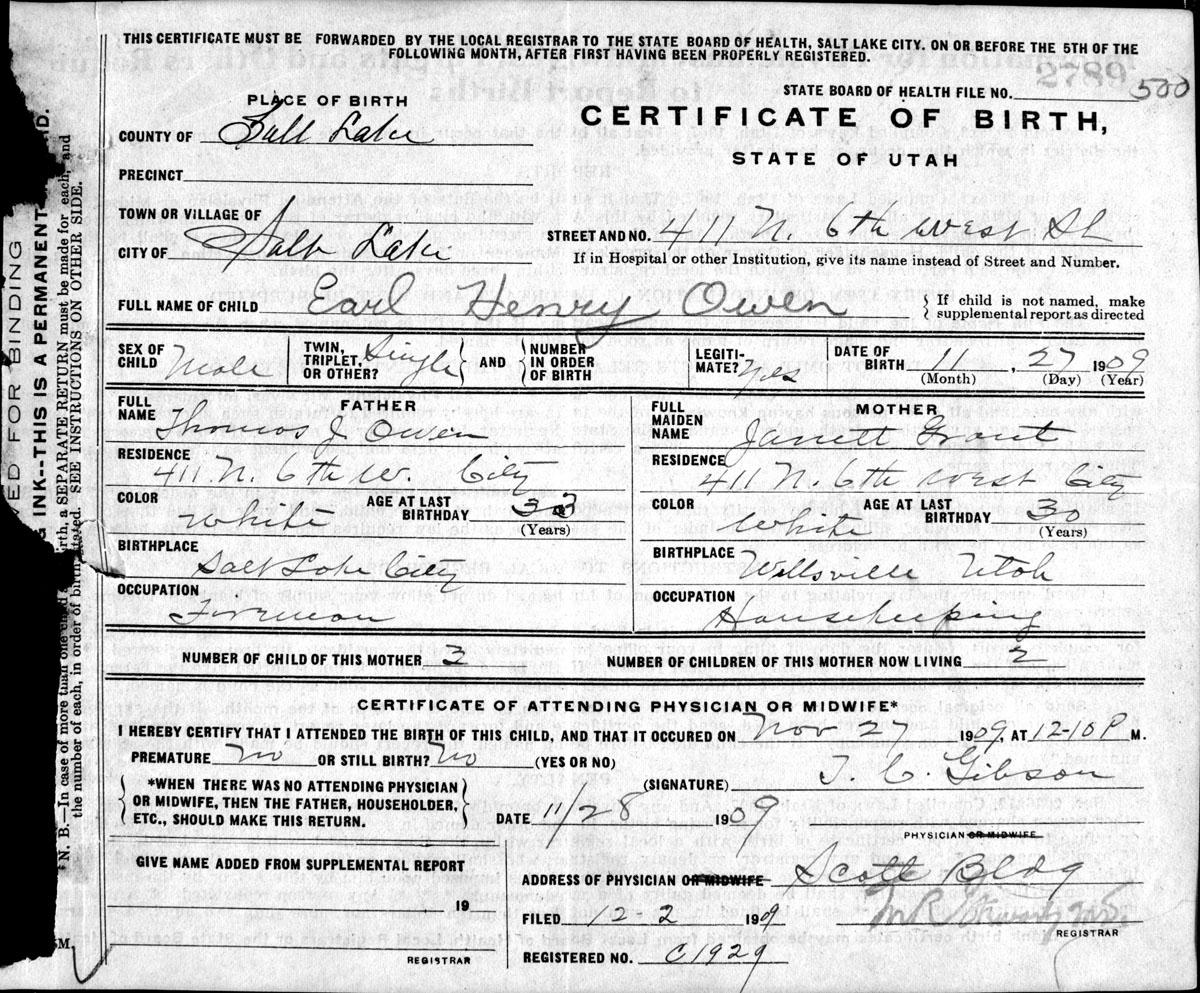 THIS CERTIFICATE MUST BE FORWARDED BY THE LOCAL REGISTRAR TO THE STATE BOARD OF HEALTH, SALT LAKE CITY. ON OR BEFORE THE 5TH OF THE
FOLLOWING MONTH, AFTER FIRST HAVING BEEN PROPERLY REGISTERED.
2789
STATE BOARD OF HEALTH FILE NO. 500
PLACE OF BIRTH
CERTIFICATE OF BIRTH,
STATE OF UTAH
COUNTY OF Salt Lake
PRECINCT
TOWN OR VILLAGE OF
CITY OF Salt Lake
STREET AND NO. 411 N. 6th West St
If in Hospital or other Institution, give its name instead of Street and Number.
FULL NAME OF CHILD Earl Henry Owen
If child is not named, make
supplemental report as directed
SEX OF CHILD Male
TWIN, TRIPLET, OR OTHER? Single
AND NUMBER IN ORDER OF BIRTH
LEGITIMATE? Yes
DATE OF BIRTH 11, 27 1909
(Month) (Day) (Year)
FATHER
FULL NAME Thomas J. Owen
RESIDENCE 411 N. 6th W. City
COLOR White
AGE AT LAST BIRTHDAY 33 (Years)
BIRTHPLACE Salt Lake City
OCCUPATION Foreman
MOTHER
FULL MAIDEN NAME Janett Grant
RESIDENCE 411 N. 6th West City
COLOR White
AGE AT LAST BIRTHDAY 30 (Years)
BIRTHPLACE Wellsville Utah
OCCUPATION Housekeeping
NUMBER OF CHILD OF THIS MOTHER 3
NUMBER OF CHILDREN OF THIS MOTHER NOW LIVING 2
CERTIFICATE OF ATTENDING PHYSICIAN OR MIDWIFE*
I HEREBY CERTIFY THAT I ATTENDED THE BIRTH OF THIS CHILD, AND THAT IT OCCURED ON Nov 27 1909, AT 12-10 P M.
PREMATURE No OR STILL BIRTH? No (YES OR NO)
(SIGNATURE) T. C. Gibson
*WHEN THERE WAS NO ATTENDING PHYSICIAN
OR MIDWIFE, THEN THE FATHER, HOUSEHOLDER,
ETC., SHOULD MAKE THIS RETURN.
DATE 11/28 1909
PHYSICIAN OR MIDWIFE
GIVE NAME ADDED FROM SUPPLEMENTAL REPORT
19
REGISTRAR
ADDRESS OF PHYSICIAN OR MIDWIFE Scott Bldg
FILED 12-2 1909
REGISTRAR
REGISTERED NO. C1929
ED FOR BINDING
INK--THIS IS A PERMANENT
N. B.—In case of more than one child a birth, a SEPARATE RETURN must be made for each, and
the number of each, in order of birth, stated. SEE INSTRUCTIONS ON OTHER SIDE.